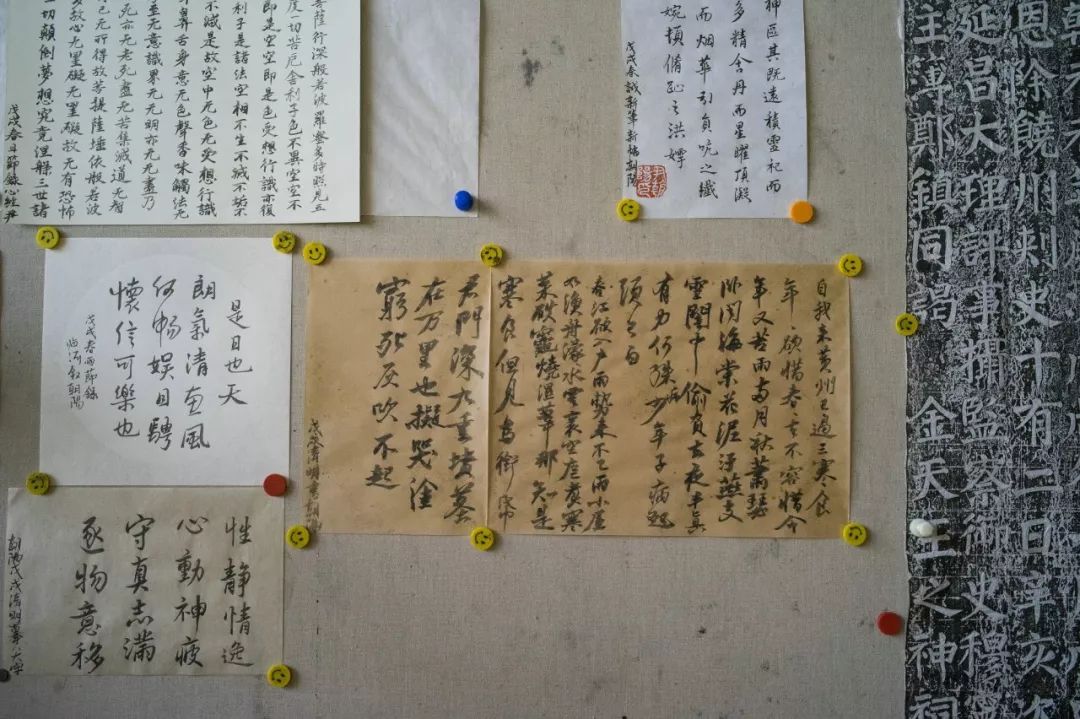 菩薩行深般若波羅蜜多時照見五
度一切苦厄舍利子色不異空空不
即是空空即是色受想行識亦復
利子是諸法空相不生不滅不垢不
不減是故空中无色无受想行識
耳鼻舌身意无色聲香味觸法无
至无意識界无无明亦无无盡乃
无亦无老死盡无苦集滅道无智
以无所得故菩提薩埵依般若波
多故心无罣礙无罣礙故无有恐怖
一切顛倒夢想究竟涅槃三世諸
戊戌春日節錄心經尹
神區其既遠積靈祀而
多精含丹而星曜頂凝
而烟華引員吭之纖
婉頓脩趾之洪姱
戊戌春試新筆朝陽
恩除饒州刺史十有二日辛亥次
延昌大理評事攝監察御史穆
主簿鄭鎮同謁金天王之神祠
自我来黄州已過三寒食
年欲惜春去不容惜今
年又苦雨兩月秋蕭瑟
卧聞海棠花泥汙燕支
雪闇中偷負去夜半真
有力何殊少年子病起
頭已白
春江欲入户雨势来不已雨小屋
如漁舟濛水雲裏空庖煮寒
菜破竈燒溼葦那知是
寒食但見烏銜帋
君門深九重墳墓
在万里也擬哭塗
窮死灰吹不起
戊戌清明
是日也天
朗氣清惠風
何暢娱目騁
懷信可樂也
戊戌春雨節錄
临河叙朝陽
性靜情逸
心動神疲
守真志滿
逐物意移
朝陽戊戌清明